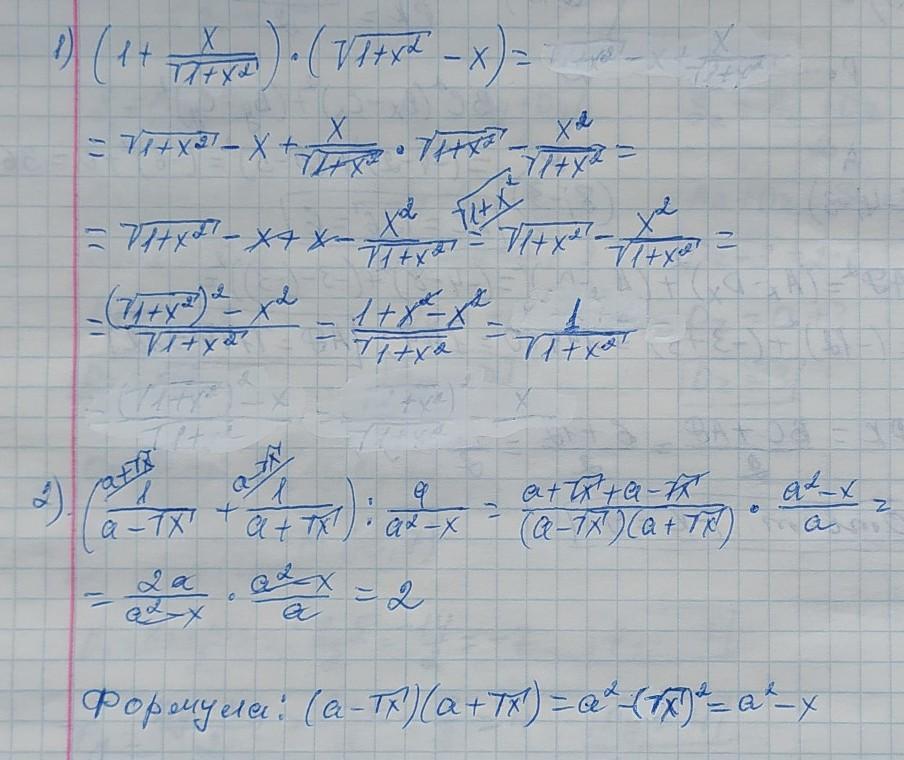 1) (1 + x/√(1+x²)) · (√(1+x²) - x) =
= √(1+x²) - x + x/√(1+x²) · √(1+x²) - x²/√(1+x²) =
= √(1+x²) - x + x - x²/√(1+x²) = √(1+x²) √(1+x²) - x²/√(1+x²) =
= ((√(1+x²))² - x²)/√(1+x²) = (1+x²-x²)/√(1+x²) = 1/√(1+x²)
2) (a+√x 1/(a-√x) + a-√x 1/(a+√x)) : a/(a²-x) = (a+√x+a-√x)/((a-√x)(a+√x)) · (a²-x)/a =
= 2a/(a²-x) · (a²-x)/a = 2
Формула: (a-√x)(a+√x) = a²-(√x)² = a²-x